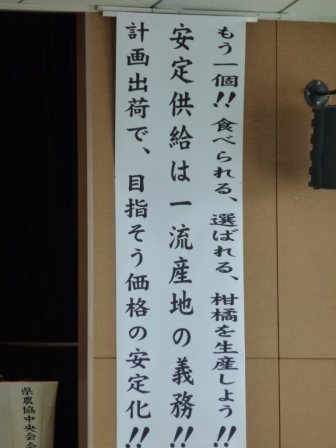 もう一個!! 食べられる、選ばれる、柑橘を生産しよう!!
安定供給は一流産地の義務!!
計画出荷で、目指そう価格の安定化!!
県農協中央会会